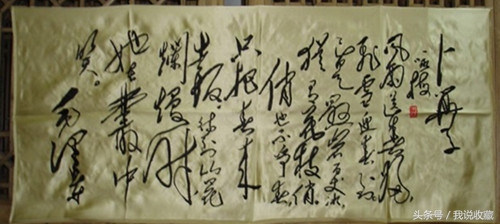 卜算子
咏梅
风雨送春归
飞雪迎春到
已是悬崖百丈冰
犹有花枝俏
俏也不争春
只把春来
报 待到山花
烂漫时
她在丛中
笑
毛泽东
头条号／我说收藏